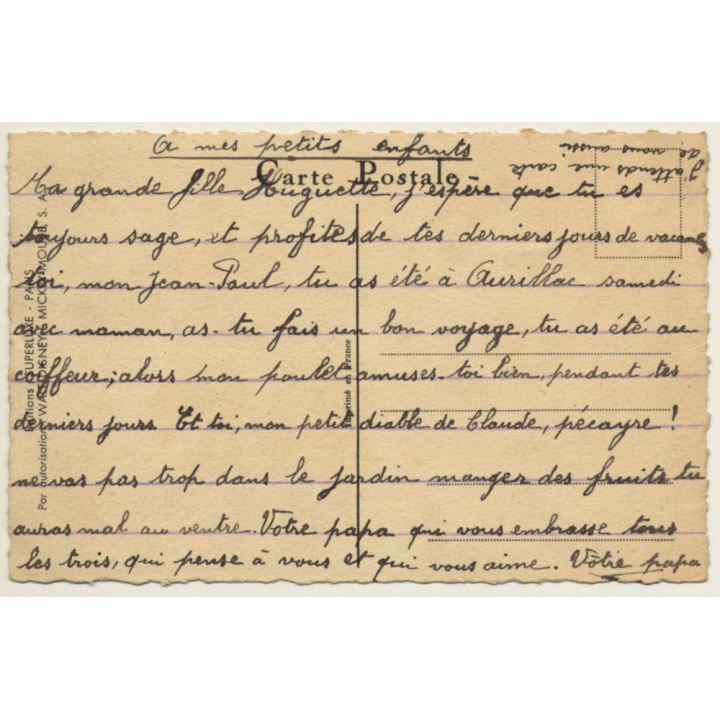 A mes petits enfants
Carte Postale
j'attends une carte
de vous aussi
Ma grande fille Huguette, j'espère que tu es
toujours sage, et profites de tes derniers jours de vacances
toi, mon Jean-Paul, tu as été à Aurillac samedi
avec maman, as-tu fais un bon voyage, tu as été au
coiffeur; alors mon poulet amuses-toi bien, pendant tes
derniers jours Et toi, mon petit diable de Claude, pécayre!
ne vas pas trop dans le jardin manger des fruits tu
auras mal au ventre. Votre papa qui vous embrasse tous
les trois, qui pense à vous et qui vous aime. Vôtre papa
Editions SUPERLUXE - PARIS
Par autorisation WALT DISNEY MICKEY MOUSE S. A.
Imprimé en France